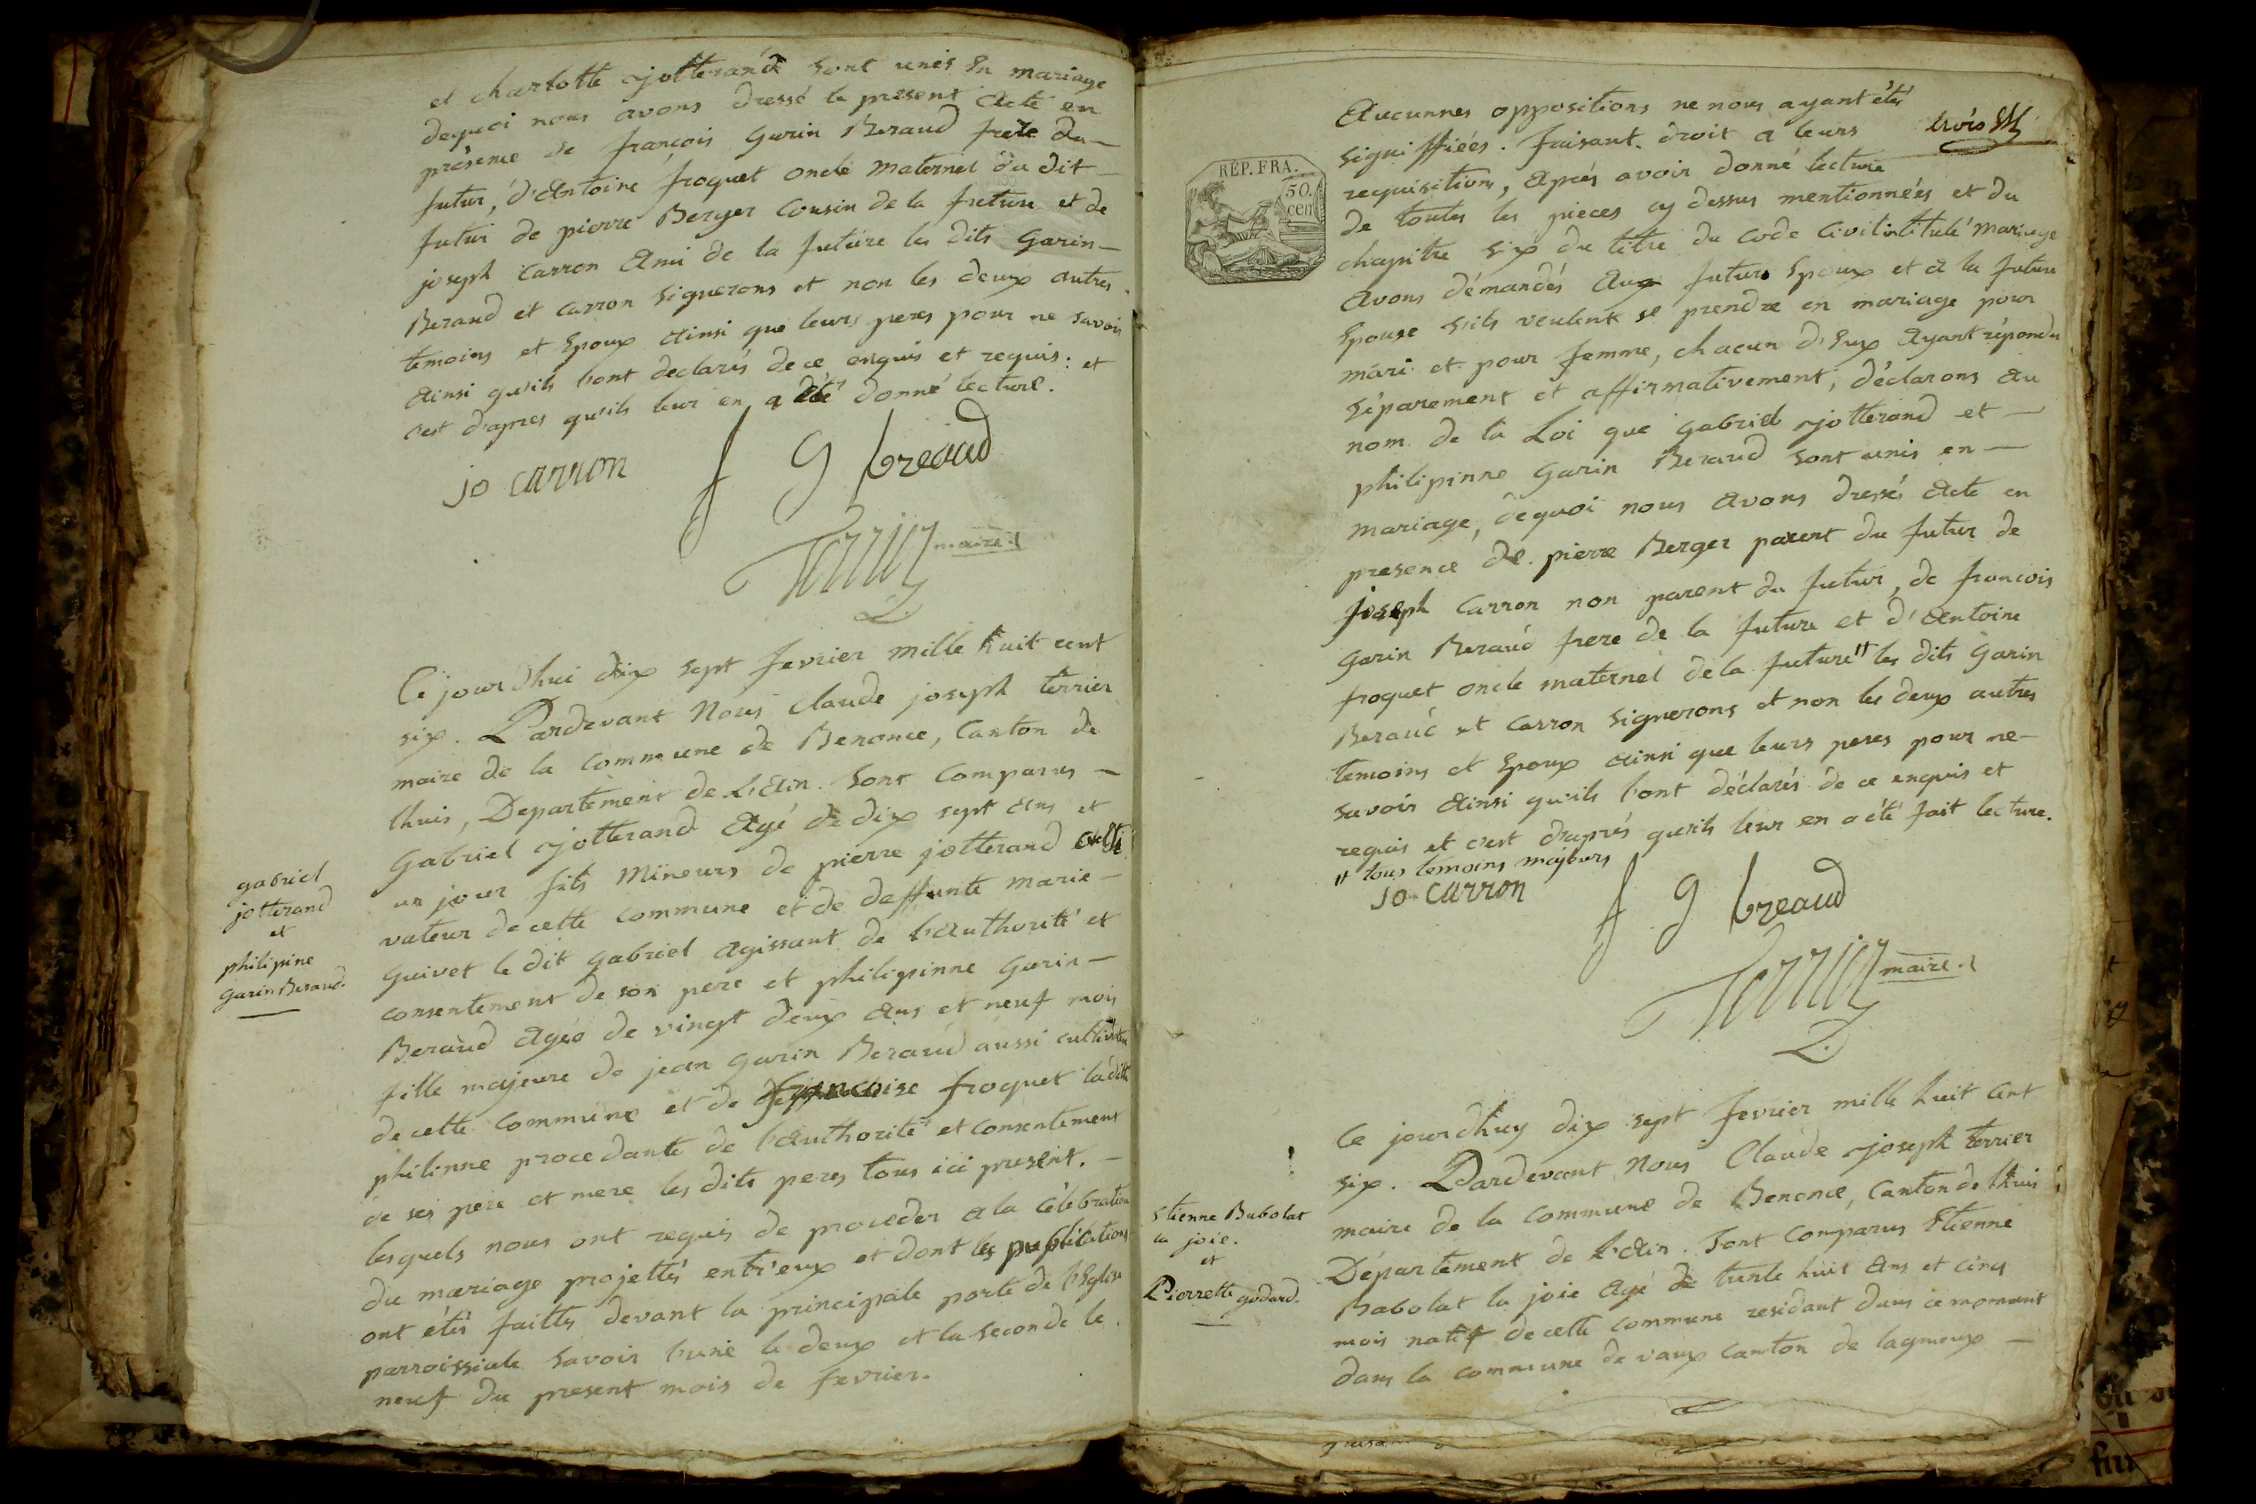 et charlotte jotterand sont unis En mariage
dequoi nous avons dressé le present Acte en
présence de françois Garin Beraud frere du
futur, d'Antoine froquet oncle maternel du dit
futur de pierre Berger Cousin de la future et de
joseph Carron Ami de la future les dits Garin
Beraud et Carron signerons et non les deux autres
temoins et Epoux Ainsi que leurs peres pour ne savoir
Ainsi qu'ils l'ont declarés de ce enquis et requis : et
c'est d'apres qu'ils leur en a été donné lecture.
jo carron f g breaud
Terrier maire.
Ce jourdhui dix sept fevrier mille huit cent
six. Pardevant Nous Claude joseph terrier
maire de la Commune de Benonce, Canton de
lhuis, Departement de L'Ain. Sont Comparus
Gabriel jotterand Agé de dix sept Ans et
un jour fils Mineurs de pierre jotterand culti
vateur de cette Commune et de deffunte Marie
Guivet le dit Gabriel Agissant de l'Authorité et
consentement de son pere et philipinne Garin
Beraud Agée de vingt deux Ans et neuf mois
fille majeure de jean Garin Beraud aussi cultivateur
de cette Commune et de françoise froquet la dite
philinne procedante de l'Authorité et consentement
de ses pere et mere les dits peres tous ici present.
lesquels nous ont requis de proceder a la célebration
du mariage projettés entr'eux et dont les publications
ont étés faittes devant la principale porte de l'Eglise
parroissiale Savoir l'une le deux et la seconde le
neuf du present mois de fevrier.
gabriel
jotterand
et
philipine
Garin Beraud.
trois
REP. FRA.
50
cen
Aucunnes oppositions ne nous ayant étés
signiffiées. faisant droit a leurs
requisitions, Aprés avoir donné lecture
de toutes les pieces cy dessus mentionnées et du
chapitre six du titre du Code Civil intitulé Mariage
Avons démandés Aux futurs Epoux et a la future
Epouse s'ils veulent se prendre en mariage pour
mari et pour femme, chacun d'Eux Ayant répondu
séparement et affirmativement, déclarons Au
nom de la Loi que gabriel jotterand et
philipinne Garin Beraud sont unis en
mariage, dequoi nous Avons dressés Acte en
presence de pierre Berger parent du futur de
joseph Carron non parent du futur, de françois
Garin Beraud frere de la future et d'Antoine
froquet oncle maternel de la future" les dits Garin
Beraud et Carron Signerons et non les deux autres
temoins et Epoux Ainsi que leurs peres pour ne
savoir Ainsi qu'ils l'ont déclarés de ce enquis et
requis et c'est d'aprés qu'ils leur en a été fait lecture.
" tous temoins majeurs
jo carron f g breaud
Terrier maire.
Ce jourdhuy dix sept fevrier mille huit Cent
six. Pardevant Nous Claude joseph terrier
maire de la Commune de Benonce, Canton de lhuis
Département de L'Ain. Sont Comparus Etienne
Babolat la joie Agé de trente huit Ans et cinq
mois natif de cette Commune residant dans ce moment
dans la commune de vaux Canton de lagnieux
Etienne Babolat
la joie.
et
Pierrette godard.